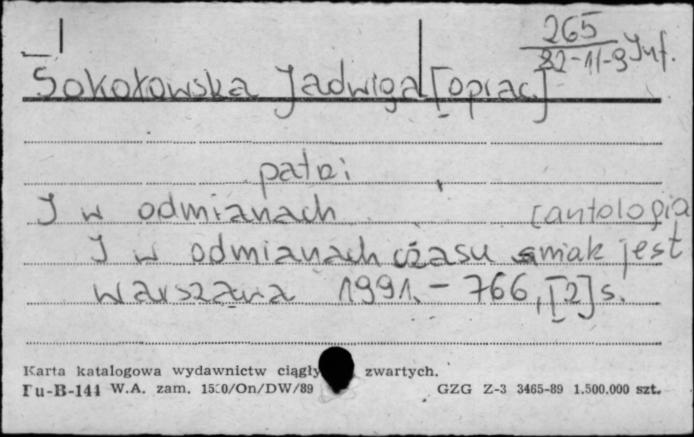 265
82-11-9 Inf.
Sokołowska Jadwiga [oprac]
patrz:
I w odmianach [antologia
I w odmianach czasu smak jest
Warszawa 1991. - 766, [2] s.
Karta katalogowa wydawnictw zwartych.
Pu-B-144 W.A. zam. 1520/On/DW/89 GZG Z-3 3465-89 1.500.000 szt.